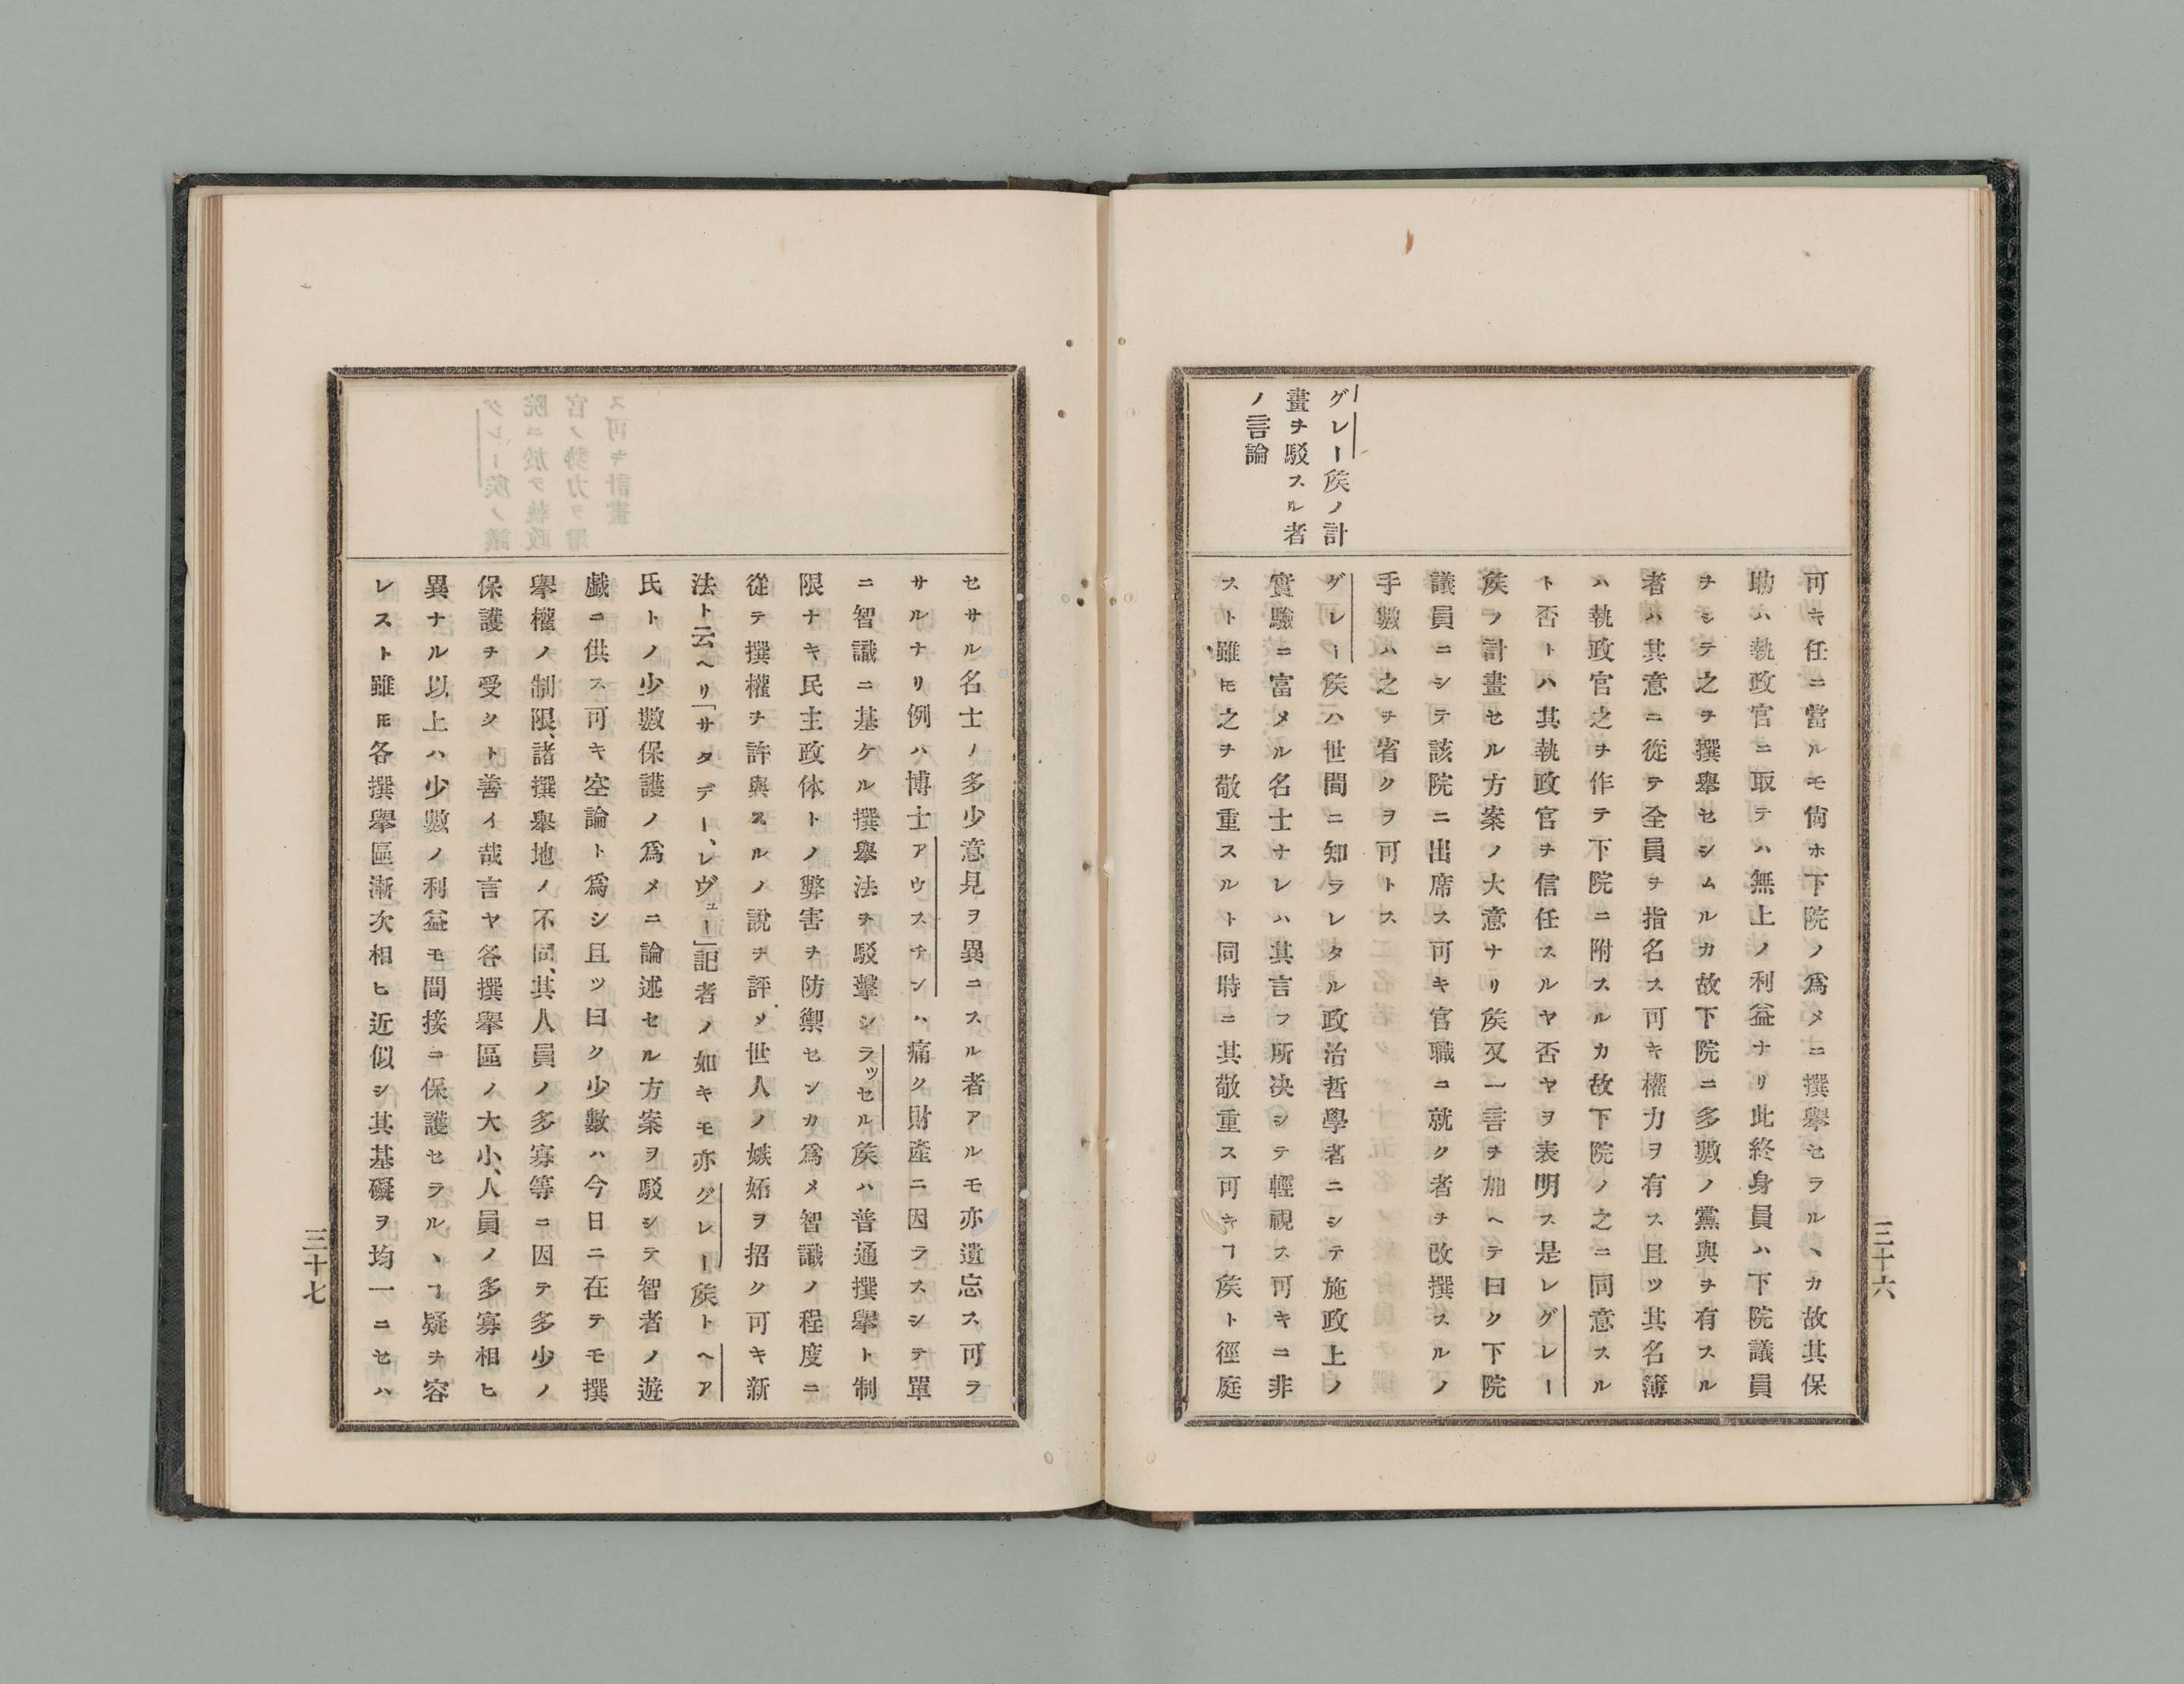 グレー矦ノ計
畫ヲ駁スル者
ノ言論
可キ任ニ當ルモ尙ホ下院ノ爲メニ撰擧セラルヽカ故其保
助ハ執政官ニ取テハ無上ノ利益ナリ此終身員ハ下院議員
ヲシテ之ヲ撰擧セシムルカ故下院ニ多數ノ黨與ヲ有スル
者ハ其意ニ從テ全員ヲ指名ス可キ權力ヲ有ス且ツ其名簿
ハ執政官之ヲ作テ下院ニ附スルカ故下院ノ之ニ同意スル
ト否トハ其執政官ヲ信任スルヤ否ヤヲ表明ス是レグレー
矦ノ計畫セル方案ノ大意ナリ矦又一言ヲ加ヘテ曰ク下院
議員ニシテ該院ニ出席ス可キ官職ニ就ク者ヲ改撰スルノ
手數ハ之ヲ省クヲ可トス
グレー矦ハ世間ニ知ラレタル政治哲學者ニシテ施政上ノ
實驗ニ富メル名士ナレハ其言フ所决シテ輕視ス可キニ非
スト雖𪜈之ヲ敬重スルト同時ニ其敬重ス可キヿ矦ト徑庭
三十六
セサル名士ノ多少意見ヲ異ニスル者アルモ亦遺忘ス可ラ
サルナリ例ハ博士アウスチンハ痛ク財產ニ因ラスシテ單
ニ智識ニ基ケル撰擧法ヲ駁擊シラッセル矦ハ普通撰擧ト制
限ナキ民主政体トノ弊害ヲ防禦センカ爲メ智識ノ程度ニ
從テ撰權ヲ許與スルノ說ヲ評メ世人ノ嫉妬ヲ招ク可キ新
法ト云ヘリ「サタデー、レヴュー」記者ノ如キモ亦グレー矦トヘア
氏トノ少數保護ノ爲メニ論述セル方案ヲ駁シテ智者ノ遊
戲ニ供ス可キ空論ト爲シ且ツ曰ク少數ハ今日ニ在テモ撰
擧權ノ制限、諸撰擧地ノ不同、其人員ノ多寡等ニ因テ多少ノ
保護ヲ受クト善イ哉言ヤ各撰擧區ノ大小、人員ノ多寡相ヒ
異ナル以上ハ少數ノ利益モ間接ニ保護セラルヽヿ疑ヲ容
レスト雖𪜈各撰擧區漸次相ヒ近似シ其基礎ヲ均一ニセハ
三十七